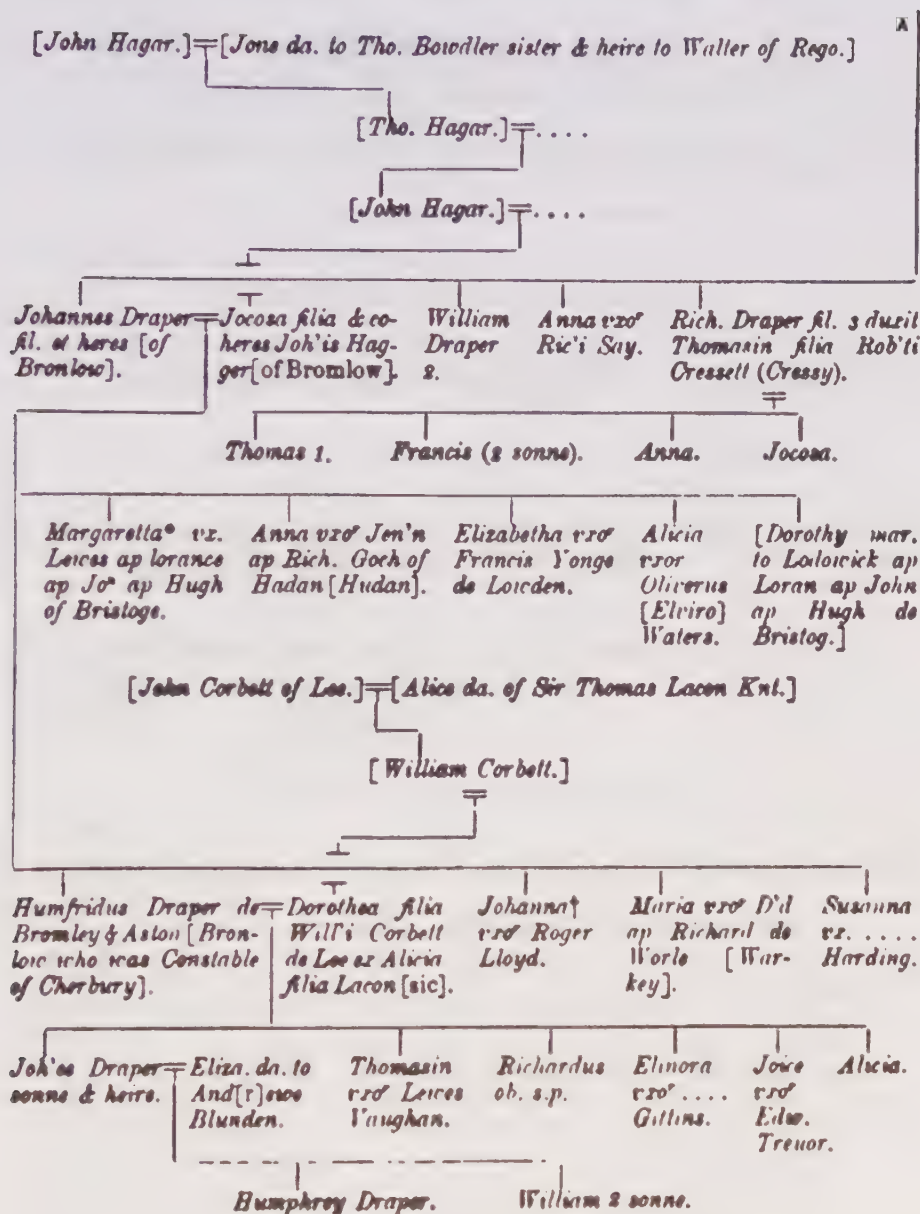 A
[John Hagar.]=[Jone da. to Tho. Bowdler sister & heire to Walter of Rego.]
[Tho. Hagar.]=. . . .
[John Hagar.]=. . . .
Johannes Draper=
fil. et heres [of
Bronlow].
Jocosa filia & co-
heres Joh'is Hag-
ger[of Bromlow].
William
Draper
2.
Anna vxor
Ric'i Say.
Rich. Draper fil. 3 duxit
Thomasin filia Rob'ti
Cressett (Cressy).
Thomas 1.
Francis (2 sonne).
Anna.
Jocosa.
Margaretta* vx.
Lewes ap lorance
ap Jon ap Hugh
of Bristoge.
Anna vxor Jen'n
ap Rich. Goch of
Hadan [Hudan].
Elizabetha vxor
Francis Yonge
de Lowden.
Alicia
vxor
Oliverus
[Elviro]
Waters.
[Dorothy mar.
to Lodowick ap
Loran ap John
ap Hugh de
Bristog.]
[John Corbett of Lee.]=[Alice da. of Sir Thomas Lacon Knt.]
[William Corbett.]
Humfridus Draper de=
Bromley & Aston [Bron-
low who was Constable
of Cherbury].
Dorothea filia
Will'i Corbett
de Lee ex Alicia
filia Lacon [sic].
Johanna†
vxor Roger
Lloyd.
Maria vxor D'd
ap Richard de
Worle [War-
key].
Susanna
vx. . . . .
Harding.
Joh'es Draper=
sonne & heire.
Eliza. da. to
And[r]ewe
Blunden.
Thomasin
vxor Lewes
Vaughan.
Richardus
ob. s.p.
Elinora
vxor . . . .
Gittins.
Joice
vxor
Edw.
Treuor.
Alicia.
Humphrey Draper.
William 2 sonne.